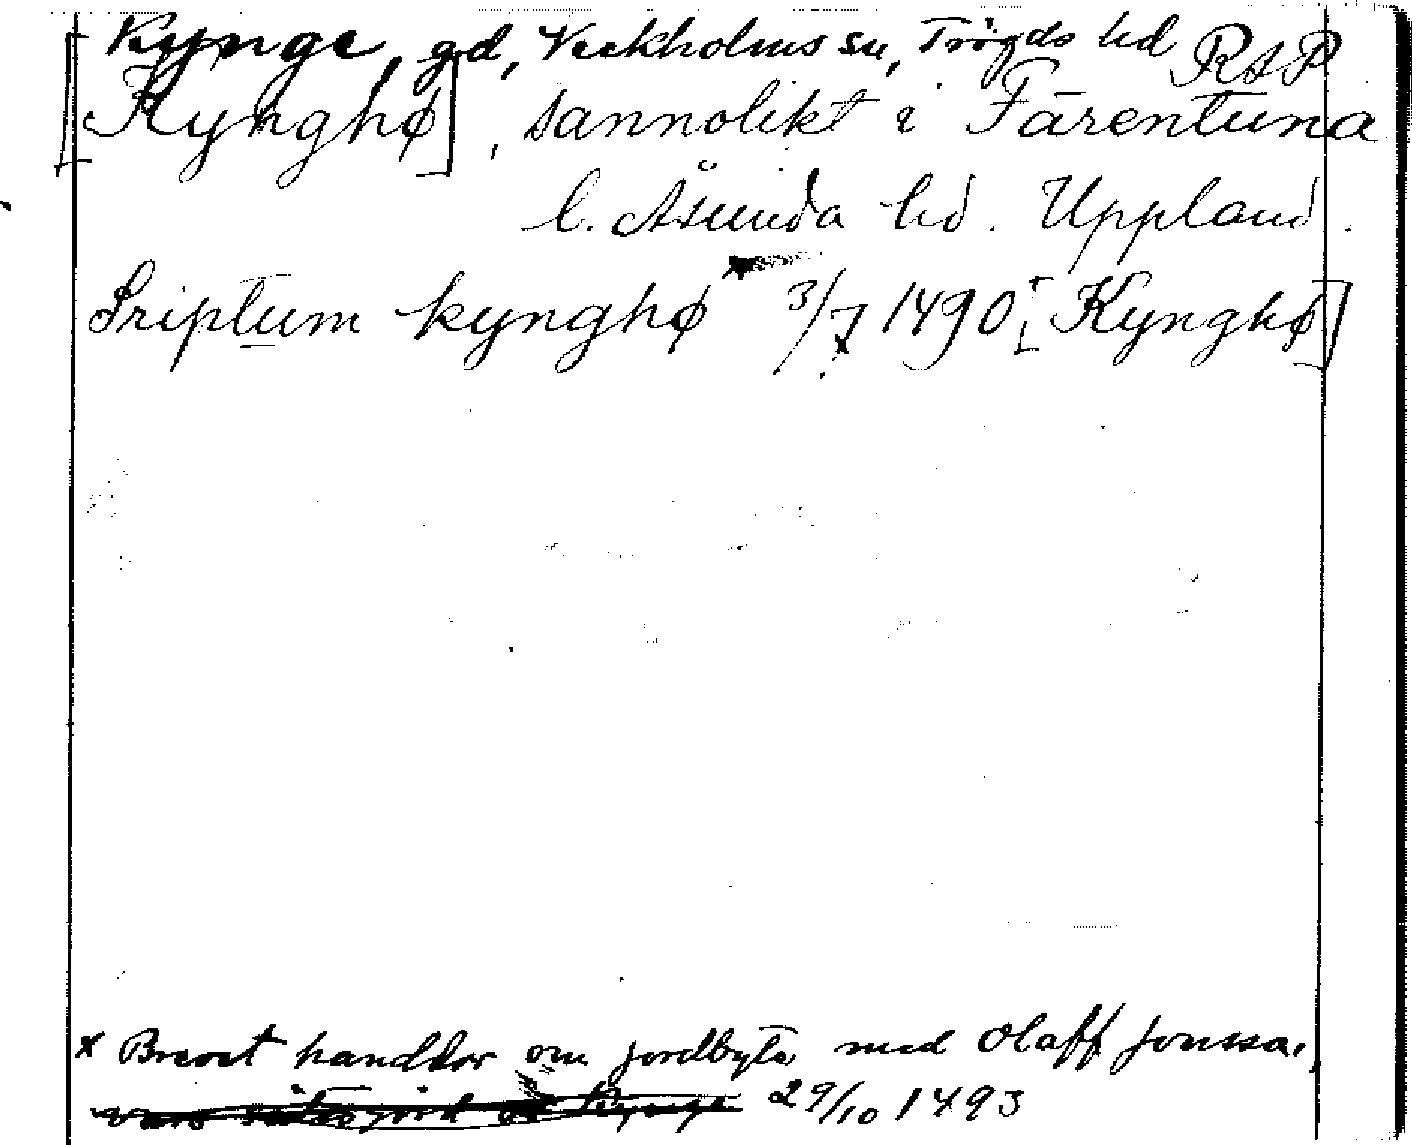 Kynge, gd, Veckholms sn, Trögds hd RAP
[Kynghø], sannolikt i Färentuna
l. Åsunda hd. Uppland.
Sriptum kynghø 3/7 1490 [Kynghø]
x
x Brevet handlar om jordbyte med Olaff Jonssa,
vars sätesgård är Kynge 29/10 1493